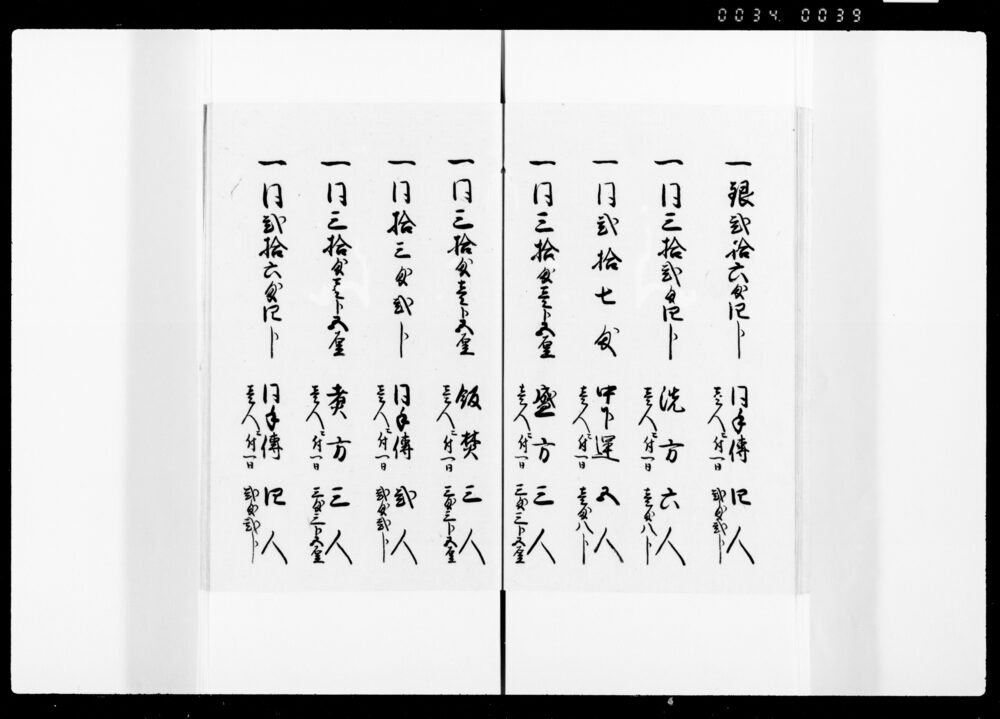 0034. 0039
一銀弐拾六匁四分 同手傳 四人
壱人ニ付一日 弐匁弐分
一同三拾弐匁四分 洗方 六人
壱人ニ付一日 壱匁八分
一同弐拾七匁 中下運 五人
壱人ニ付一日 壱匁八分
一同三拾匁壱分五厘 盛方 三人
壱人ニ付一日 三匁三分五厘
一同三拾匁壱分五厘 飯焚 三人
壱人ニ付一日 三匁三分五厘
一同拾三匁弐分 同手傳 弐人
壱人ニ付一日 弐匁弐分
一同三拾匁壱分五厘 煮方 三人
壱人ニ付一日 三匁三分五厘
一同弐拾六匁四分 同手傳 四人
壱人ニ付一日 弐匁弐分